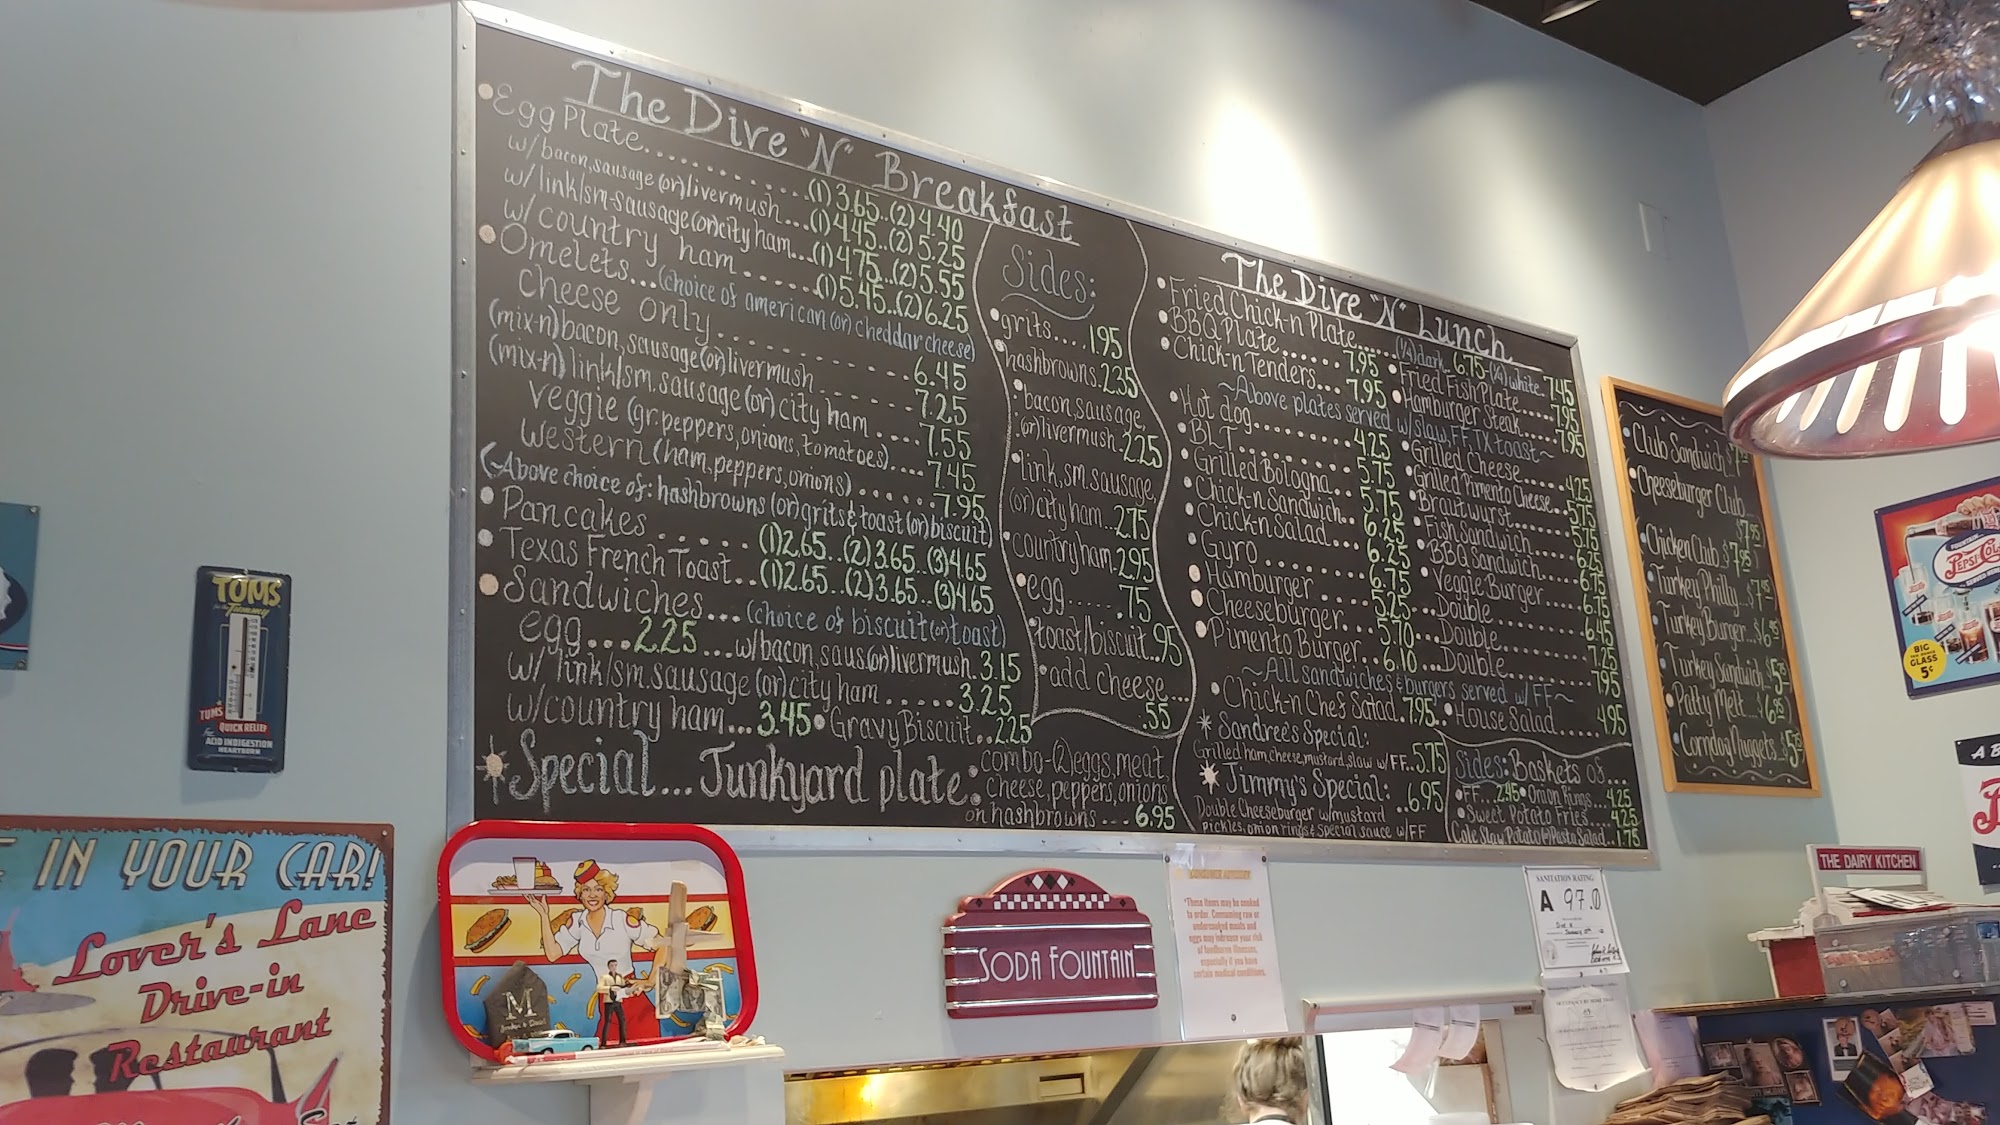 The Dive "N" Breakfast
Egg Plate..........(1) 3.65..(2) 4.40
w/bacon, sausage (or) livermush...(1) 4.45..(2) 5.25
w/link/sm. sausage (or) city ham...(1) 4.75..(2) 5.55
w/country ham.......(1) 5.45..(2) 6.25
Omelets...(choice of american (or) cheddar cheese)
cheese only.......... 6.45
(mix-n) bacon, sausage (or) livermush...... 7.25
(mix-n) link/sm. sausage (or) city ham .... 7.55
veggie (gr. peppers, onions, tomatoes).... 7.45
western (ham, peppers, onions)...... 7.95
(~Above choice of: hashbrowns (or) grits & toast (or) biscuit)
Pancakes ..... (1) 2.65..(2) 3.65..(3) 4.65
Texas French Toast..(1) 2.65..(2) 3.65..(3) 4.65
Sandwiches... (choice of biscuit (or) toast)
egg... 2.25 ....w/bacon, saus. (or) livermush. 3.15
w/ link/sm. sausage (or) city ham ..... 3.25
w/country ham... 3.45 Gravy Biscuit.. 2.25
Special... Junkyard plate: combo-(2) eggs, meat,
cheese, peppers, onions
on hashbrowns ... 6.95
Sides:
grits.... 1.95
hashbrowns. 2.35
bacon, sausage,
(or) livermush. 2.25
link, sm. sausage,
(or) city ham... 2.75
country ham. 2.95
egg..... .75
toast/biscuit.. 95
add cheese...
.55
The Dive "N" Lunch
Fried Chick-n Plate......(1/4) dark. 6.75 (1/4) white. 7.45
BBQ Plate...... 7.95 Fried Fish Plate..... 7.95
Chick-n Tenders... 7.95 Hamburger Steak.... 7.95
~Above plates served w/slaw, FF, TX toast~
Hot dog......... 4.25 Grilled Cheese.... 4.25
BLT............ 5.75 Grilled Pimento Cheese... 5.75
Grilled Bologna.... 5.75 Bratwurst..... 5.75
Chick-n Sandwich.. 6.25 Fish Sandwich..... 6.25
Chick-n Salad.... 6.25 BBQ Sandwich.... 6.75
Gyro .......... 6.75 Veggie Burger..... 6.75
Hamburger ...... 5.25...Double........ 6.45
Cheeseburger..... 5.70...Double........ 7.25
Pimento Burger.. 6.10...Double........ 7.95
~All sandwiches & burgers served w/ FF~
Chick-n Chef Salad. 7.95.. House Salad.... 4.95
Sandree's Special:
Grilled ham, cheese, mustard, slaw w/ FF.. 5.75
Jimmy's Special: ..6.95
Double Cheeseburger w/mustard
pickles, onion rings & special sauce w/ FF
Sides: Baskets of....
FF.... 2.45 Onion Rings... 4.25
Sweet Potato Fries.... 4.25
Cole Slaw, Potato (or) Pasta Salad.. 1.75
Club Sandwich
Cheeseburger Club
$7.95
Chicken Club $7.95
Turkey Philly..
Turkey Burger...
Turkey Sandwich
Patty Melt...
Corndog Nuggets..
TUMS
for the Tummy
TUMS
QUICK RELIEF
for
ACID INDIGESTION
HEARTBURN
IN YOUR CAR!
Lover's Lane
Drive-in
Restaurant
M
SODA FOUNTAIN
CONSUMER ADVISORY
"These items may be cooked
to order. Consuming raw or
undercooked meats and
eggs may increase your risk
of foodborne illnesses,
especially if you have
certain medical conditions.
SANITATION RATING
A 97.0
THE DAIRY KITCHEN
PEPSI-COLA
BIG
GLASS
5¢
A B